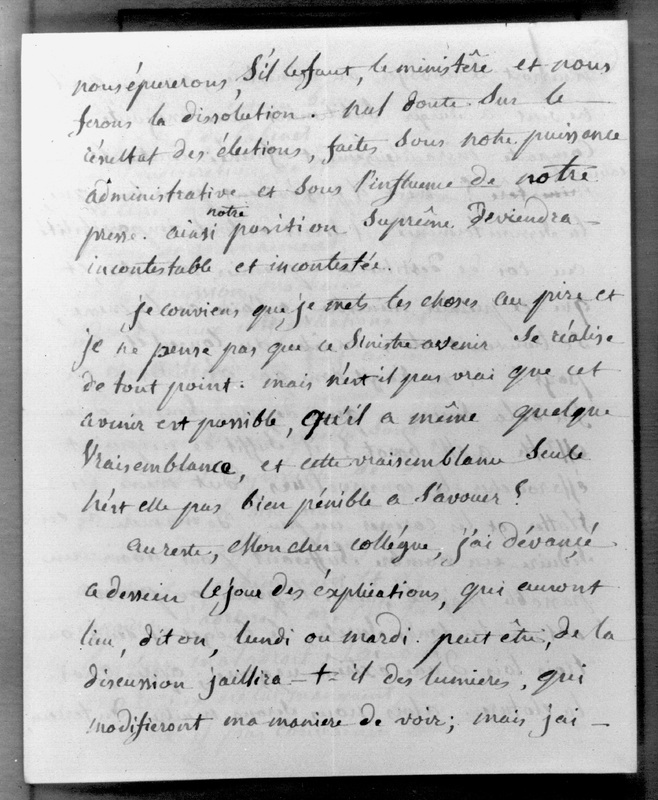 nous épurerons, S'il le faut, le ministêre et nous
ferons la dissolution. nul doute Sur le
résultat des élections, faites Sous notre puissance
administrative et Sous l'influence de notre
presse. ainsi notre position Suprême deviendra
incontestable et incontestée.
je conviens que je mets les choses au pire et
je ne pense pas que ce Sinistre avenir Se réalise
de tout point. mais n'est il pas vrai que cet
avenir est possible, qu'il a même quelque
Vraisemblance, et cette vraisemblance Seule
n'est elle pas bien pénible a S'avouer ?
au reste, Mon cher collegue, j'ai dévancé
a dessein le jour des éxplications, qui auront
lieu, dit on, lundi ou mardi. peut être, de la
discussion jaillira-t-il des lumieres, qui
modifieront ma maniere de voir; mais j'ai